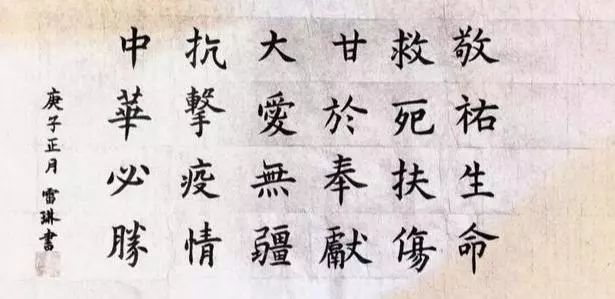 敬祐生命
救死扶傷
甘於奉獻
大愛無疆
抗擊疫情
中華必勝
庚子正月 雷琳書